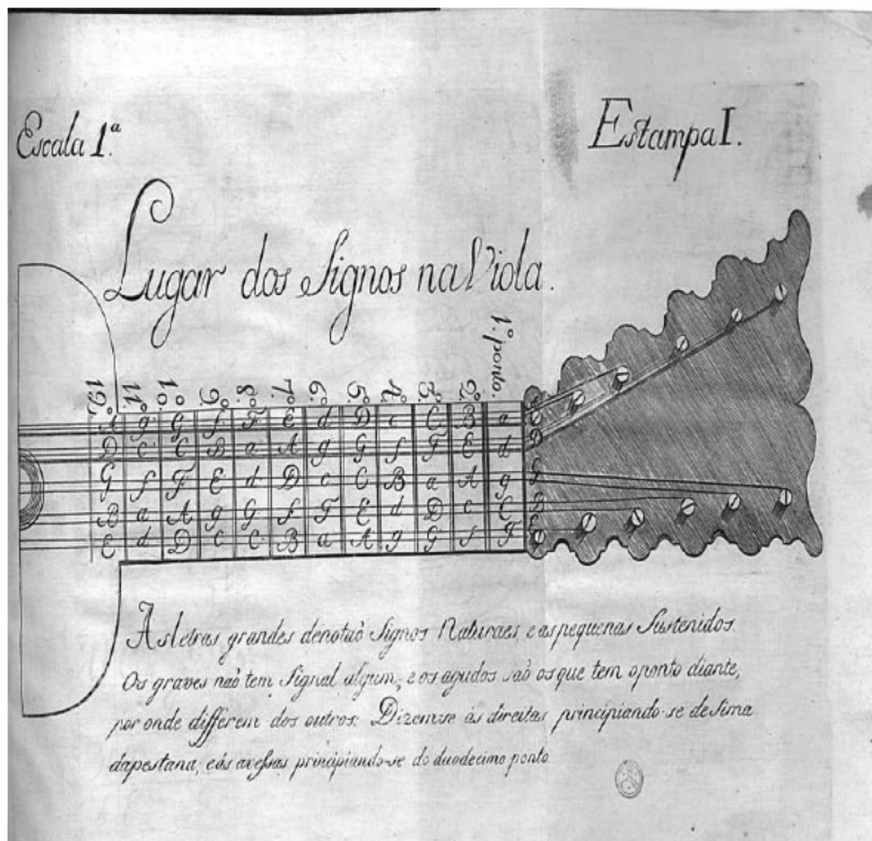 Escala 1ª.
Estampa I.
Lugar dos Signos na Viola.
12. 11º. 10º. 9º. 8º. 7º. 6º. 5º. 4º. 3º. 2º. 1º. ponto.
A g G f F E d D c C B a
D c C B a A g G f F E d D
G f F E d D c C B a A g G
B a A g G f F E d D c C B
E d D c C B a A g G f F E
As letras grandes denotaõ Signos Naturaes, e as pequenas Sustenidos.
Os graves naõ tem Signal algum; e os agudos saõ os que tem o ponto diante,
por onde differem dos outros. Dizem-se ás direitas principiando-se de sima
da pestana, e ás avessas principiando-se do duodecimo ponto.